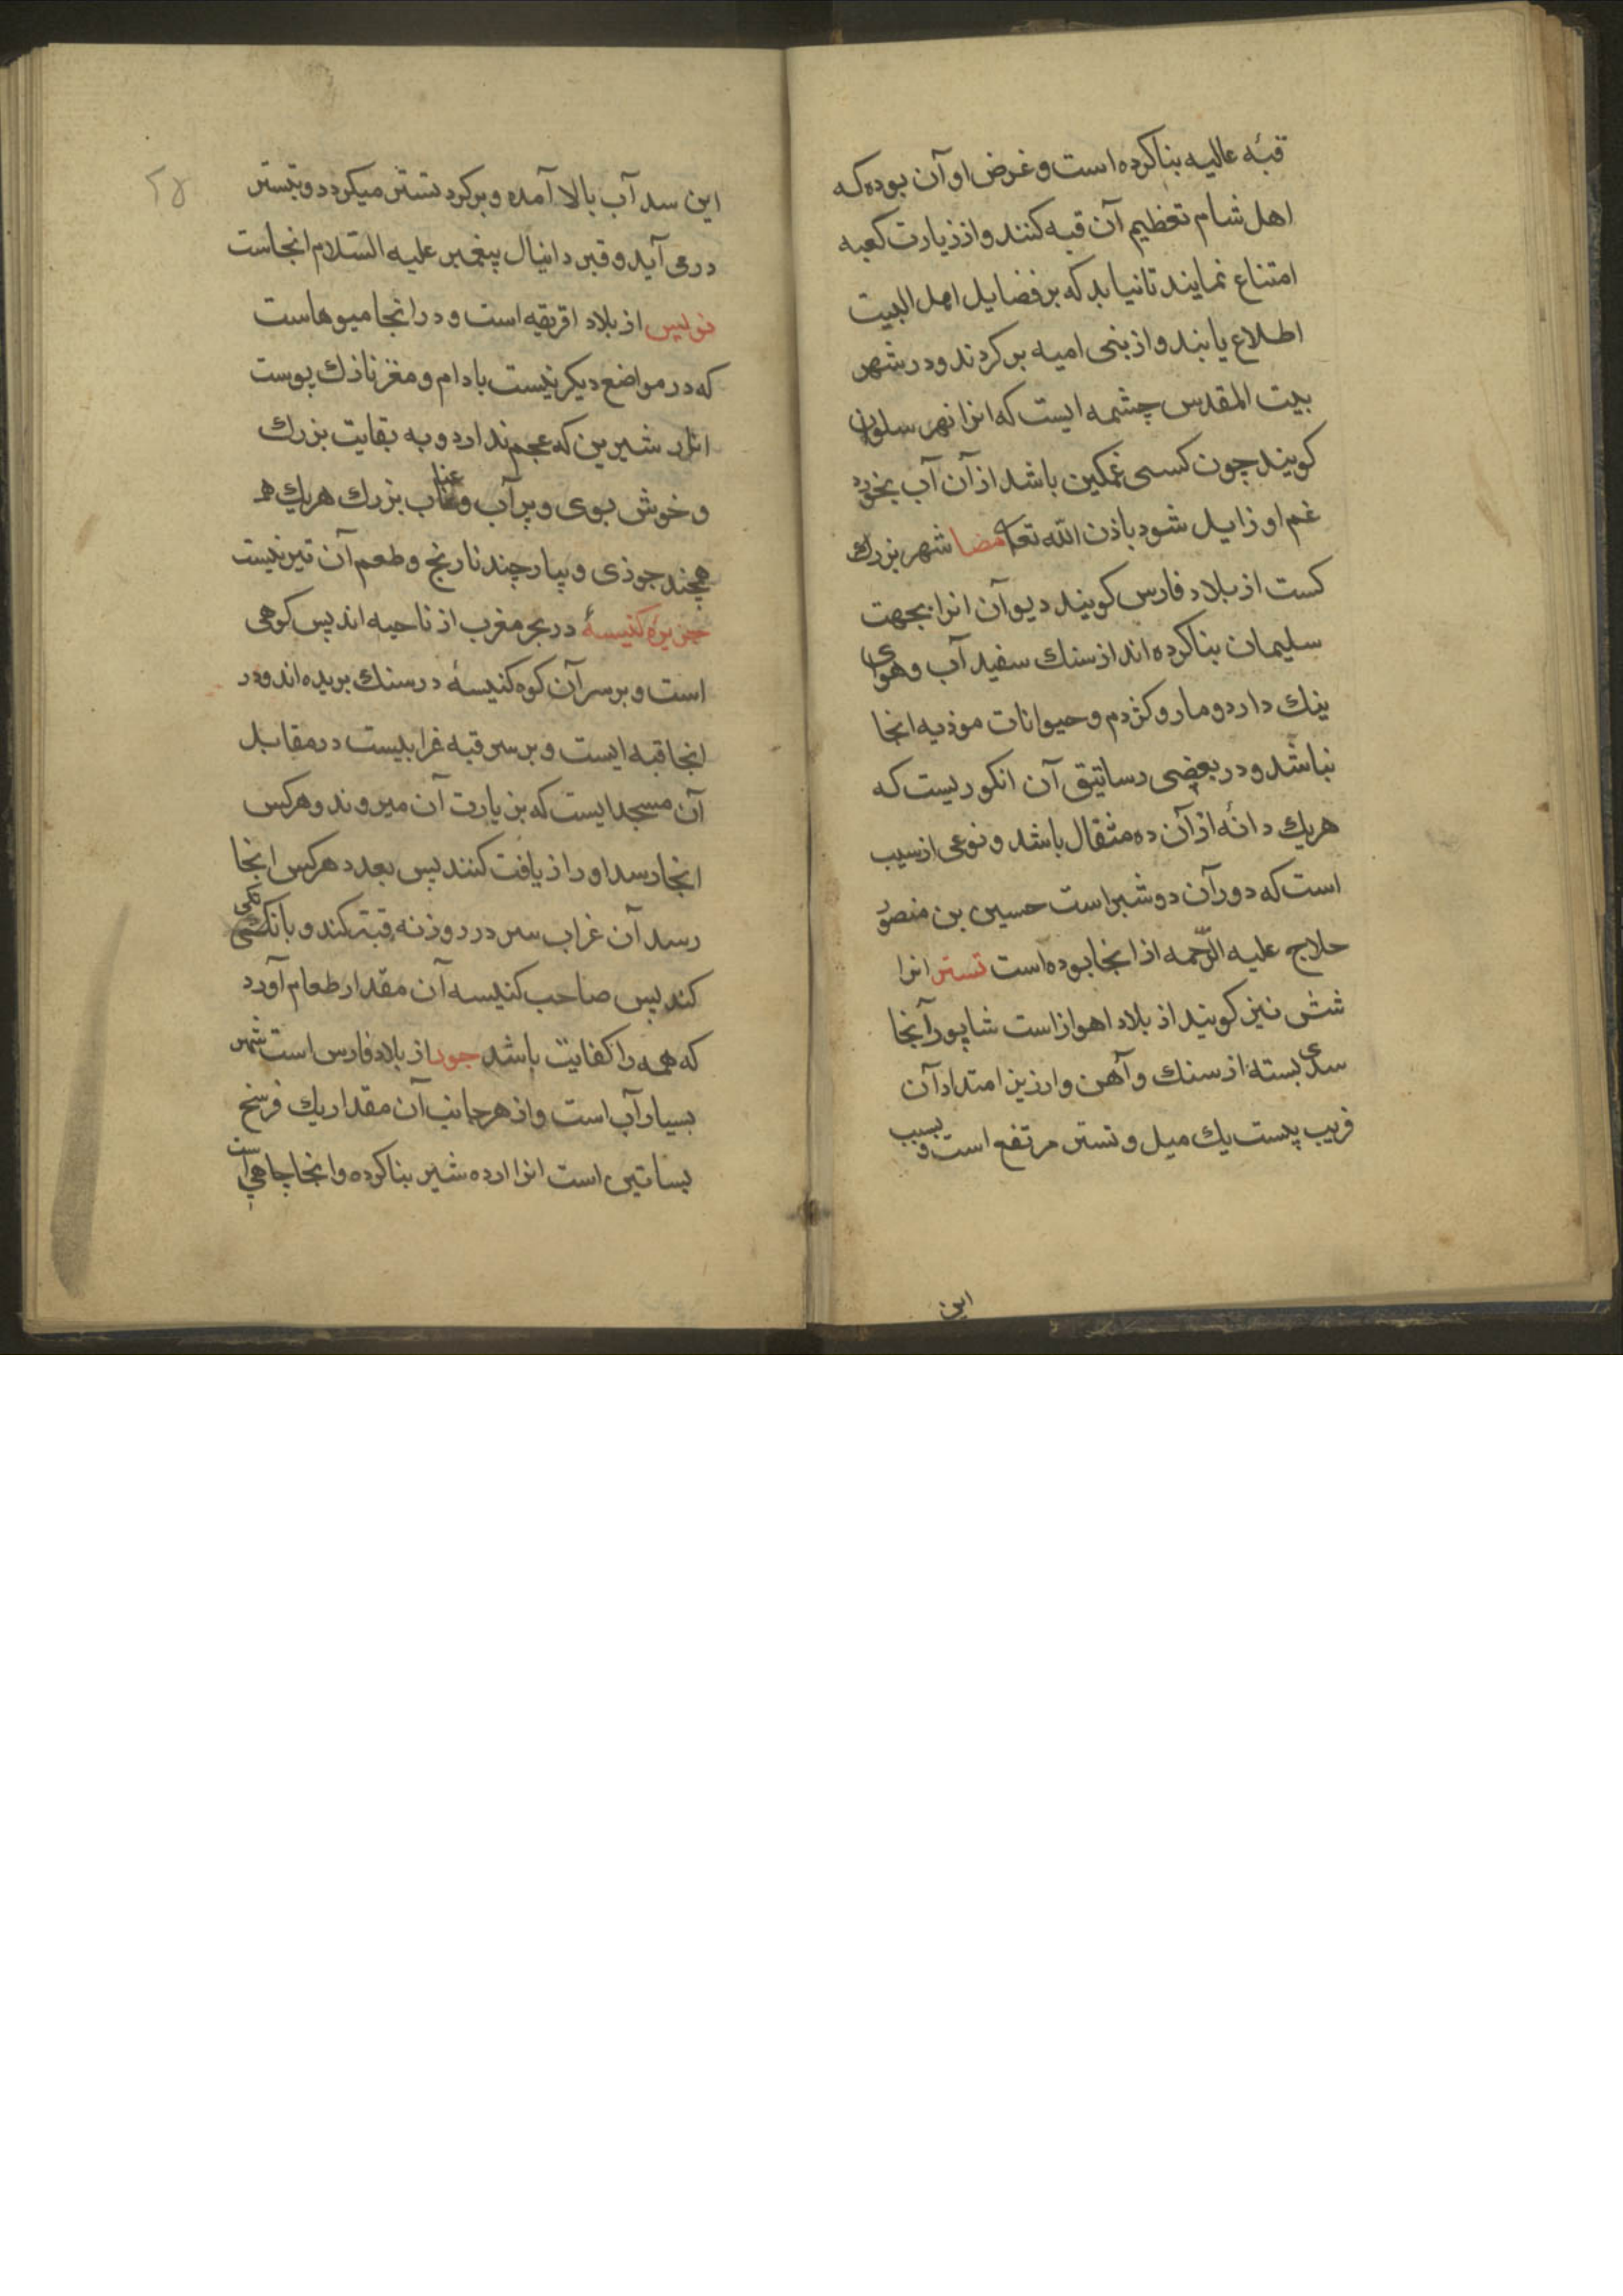 قبۀ عالیه بنا کرده است و غرض او آن بوده که
اهل شام تعظیم آن قبه کنند و از زیارت کعبه
امتناع نمایند تا نیابد که بر فضایل اهل البیت
اطلاع یابند و از بنی امیه بر کردند و در شهر
بیت المقدس چشمه ایست که انرا نهر سلوان
کویند چون کسی غمکین باشد از آن آب بخورد
غم او زایل شود باذن الله تعا مضا شهر بزرك
کست از بلاد فارس کویند دیوآن انرا بجهت
سلیمان بنا کرده اند از سنك سفید آب و هوای
نیك دارد و مار و کژدم و حیوانات موذیه انجا
نباشد و در بعضی رساتیق آن انکوریست که
هریك دانۀ از آن ده مثقال باشد و نوعی از سیب
است که دور آن دو شبر است حسین بن منصور
حلاج علیه الرّحمه از انجا بوده است تستر انرا
شش نیز کویند از بلاد اهواز است شاپور آنجا
سدی بسته از سنك و آهن و ارزیز امتداد آن
قریب پست یك میل و تستر مرتفع است و بسبب
این
۲۸
این سد آب بالا آمده و بر کرد تستر میکردد و بتستر
در می آید و قبر دانیال پیغمبر علیه السّلام انجاست
تونس از بلاد افریقیه است و در انجا میوهاست
که در مواضع دیکر نیست بادام و مغز نازك پوست
انار شیرین که عجم ندارد و به بغایت بزرك
و خوش بوی و پر آب و عناب بزرك هریك
همچند جوزی و پیاز چند نارنج و طعم آن تیز نیست
جزیرۀ کنیسۀ در بحر مغرب از ناحیه اندلس کوهی
است و بر سر آن کوه کنیسۀ در سنك بریده اند و در
انجا قبه ایست و بر سر قبه غرابیست در مقابل
آن مسجدایست که بزیارت آن میروند و هرکس
انجا رسد او را زیافت کنند پس بعدد هرکس انجا
رسد آن غراب سر در روزنه قبّه کند و بانکی
کند پس صاحب کنیسه آن مقدار طعام آورد
که همه را کفایت باشد جور از بلاد فارس است شهر
بسیار آب است و از هر جانب آن مقدار یك فرسخ
بساتین است انرا ارده شیر بنا کرده و انجا چاهی است